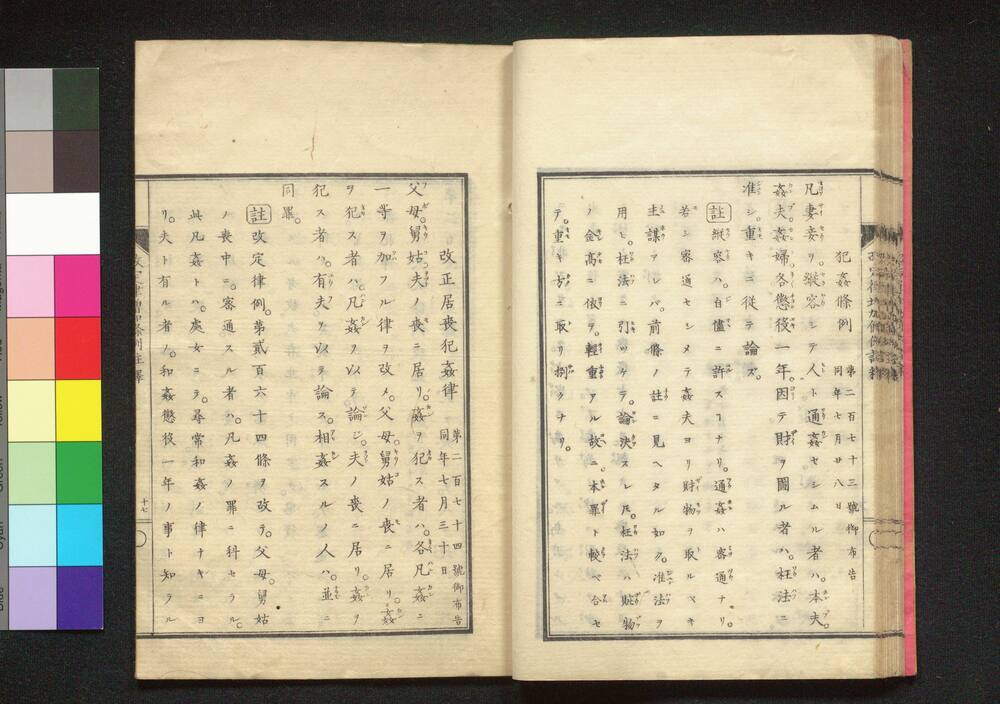 犯姦條例
第二百七十三號御布告
同年七月廿八日
凡妻妾ヲ縱容シテ人ト通姦セシムル者ハ。本夫。
姦夫。姦婦。各懲役一年。因テ財ヲ圖ル者ハ。枉法ニ
准シ。重キニ從テ論ズ。
註 縱容ハ。自儘ニ許スコナリ。通姦ハ密通ナリ。
若シ密通セシメテ姦夫ヨリ財物ヲ取ルベキ
主謀アレバ。前條ノ註ニ見ヘタル如ク。准法ヲ
用ヒ。枉法ニ引ツケテ。論決スレ𪜈。枉法ハ贓物
ノ金高ニ依テ。輕重アル故ニ。本罪ト較ベ合セ
テ。重キ方ニ取リ捌クナリ。
改正居喪犯姦律
第二百七十四號御布告
同年七月三十日
父母。舅姑夫ノ喪ニ居リ。姦ヲ犯ス者ハ。各凡姦ニ
一等ヲ加フル律ヲ改メ。父母。舅姑ノ喪ニ居リ。姦
ヲ犯ス者ハ。凡姦ヲ以テ論ジ。夫ノ喪ニ居リ。姦ヲ
犯ス者ハ。有夫ヲ以テ論ス。相姦スルノ人ハ。並ニ
同罪。
註 改定律例。第貳百六十四條ヲ改テ。父母。舅姑
ノ喪中ニ。密通スル者ハ。凡姦ノ罪ニ科セラル。
此凡姦トハ。處女ニテ。尋常和姦ノ律ナキニヨ
リ。夫ト有ル者ノ。和姦懲役一年ノ事ト知ラル
十七